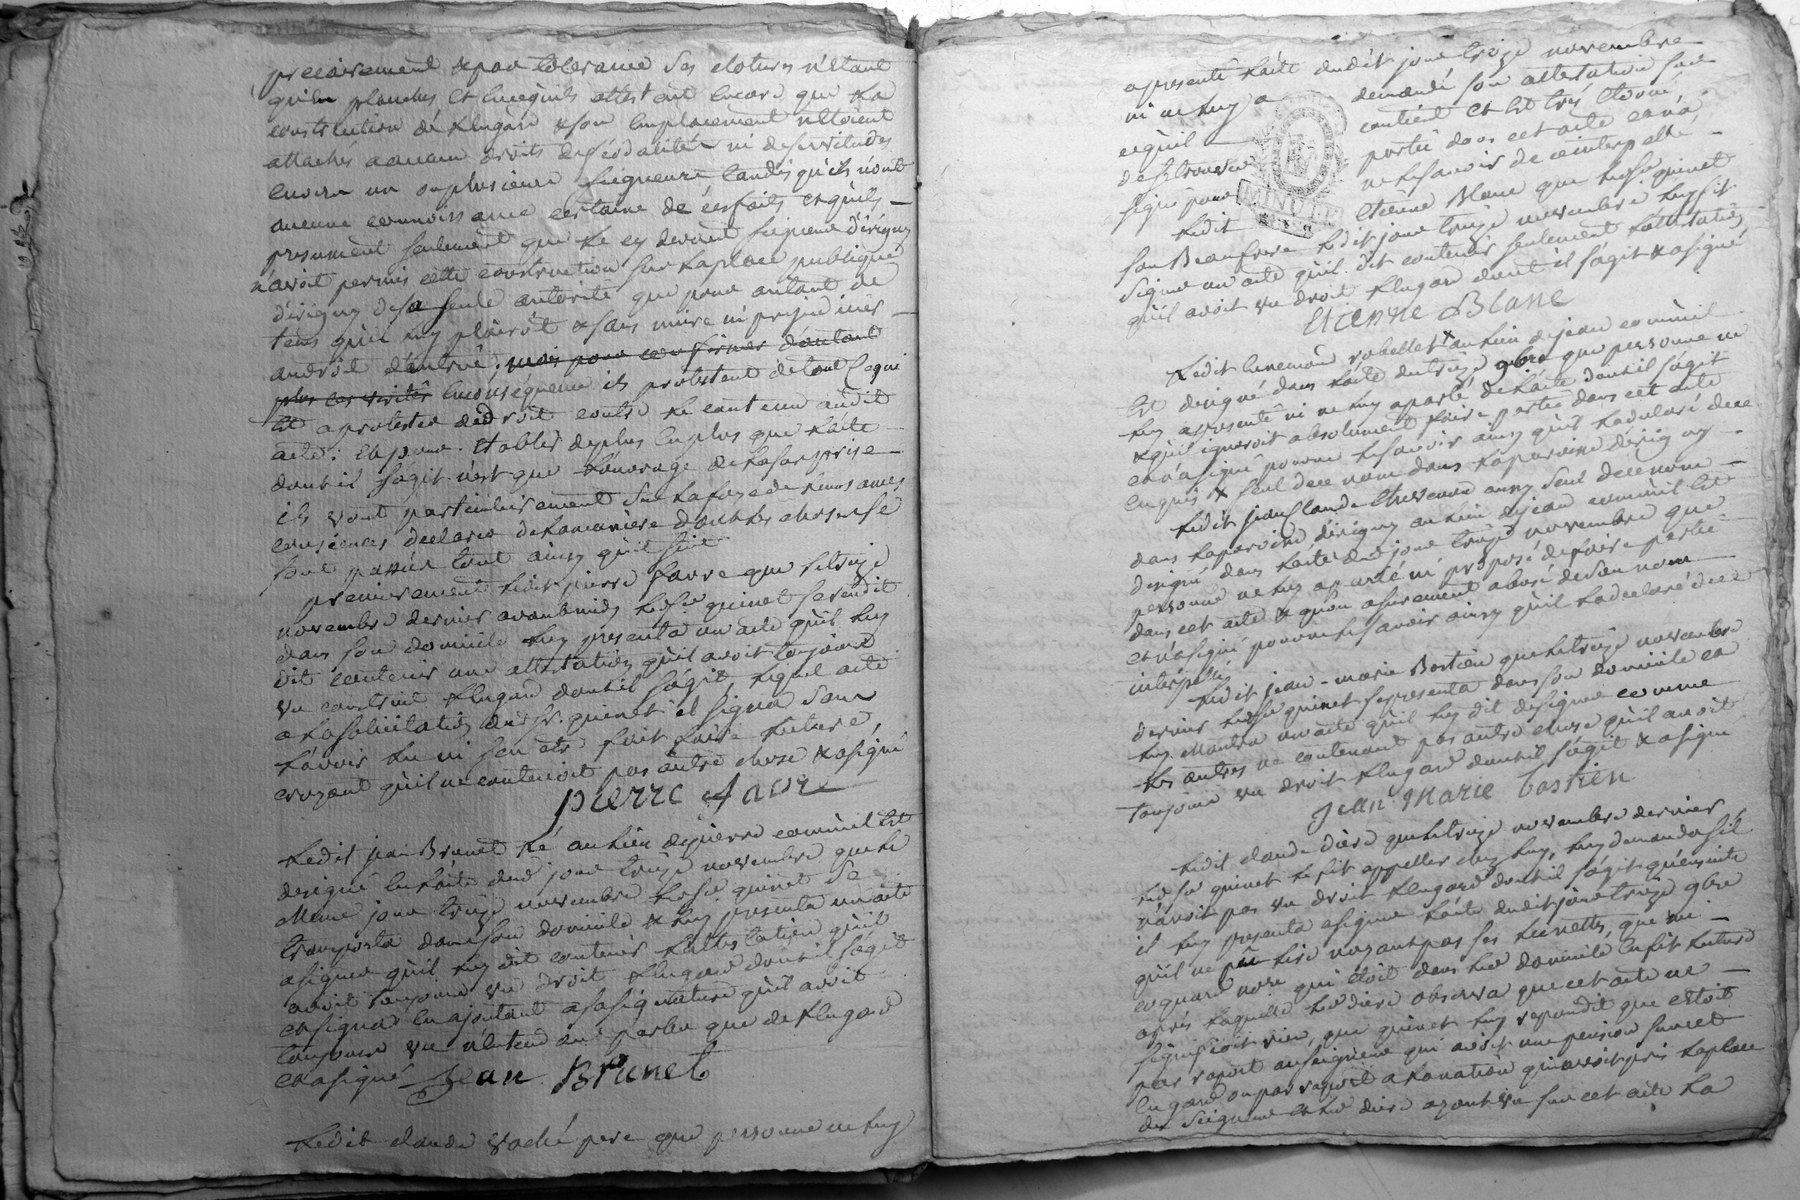 precairement & par tolerance ses clotures n'étant
qu'en planches et lucequils attestent encore que la
construction de Lengard & son emplacement n'etoient
attachés a aucun droits de féodalité ni de servitudes
envers un ou plusieurs seigneurs tandis qu'ils n'ont
aucune connoissance certaine de ces faits et qu'ils
presument seulement que le cy devant seigneur d'irigny
n'avoit permis cette construction sur la place publique
d'irigny de sa seule autorité que pour autant de
tems qu'il luy plairoit & sans nuire ni prejudicier
au droit d'autruy; mais pour confirmer d'autant
plus ces verités en conséquence ils protestent de tout ce qui
est a protester de droit contre le contenu audit
acte: et pour établir de plus en plus que l'acte
dont il s'agit n'est que l'ouvrage de la surprise
ils vont particulierement sur la foy de leurs ames
consciences declarer de la maniere dont les choses se
sont passées tout ainsy qu'il suit
premierement ledit pierre favre que le treize
novembre dernier avant midy led. sr guinet se rendit
dans son domicile luy presenta un acte qu'il luy
dit contenir une attestation qu'il avoit toujours
vu construit Lengard dont il s'agit, lequel acte
a la solicitation dud. sr. guinet il signa sans
l'avoir lu ni s'en etre fait faire lecture,
croyant qu'il ne contenoit pas autre chose & a signé
pierre favre
Ledit jean Brunet né au lieu de pierre comme il est
designé en l'acte dud. jour treize novembre que le
meme jour treize novembre led. sr guinet se
transporta dans son domicile & luy presenta un acte
a signer qu'il luy dit contenir l'attestation qu'il
avoit toujours vu droit Lengard dont il s'agit
et signa en ajoutant a sa signature qu'il avoit
toujours vu n'entend ant parler que de Lengard
et a signé Jean Brunet
Ledit claude vaché pere que personne ne luy
a presenté l'acte dudit jour treize novembre
ni ne luy a demandé son attestation sur
ce qu'il contient et est très etonné
de se trouver porté dans cet acte et n'a
signé pour ne le savoir de ce interpellé
Ledit etienne Blanc que led. sr guinet
son Beaufrere ledit jour treize novembre luy fit
signer un acte qu'il dit contenir seulement l'attestation
qu'il avoit vu droit Lengard dont il s'agit & a signé
Etienne Blanc
Ledit benemond robellet au lieu de jean comme il
est designé dans l'acte du treize 9bre que personne ne
luy a presenté ni ne luy a parlé de l'acte dont il s'agit
& qu'il ignoroit absolument faire partie dans cet acte
et n'a signé pour ne le savoir ainsy qu'il l'a declaré de ce
enquis & seul de ce nom dans la paroisse d'irigny
Ledit jean Claude thevenard aussy seul de ce nom
dans la paroisse d'irigny au lieu de jean comme il est
designé dans l'acte dud. jour treize novembre que
personne ne luy a parlé ni proposé de faire partie
dans cet acte & qu'on a surement abusé de son nom
et n'a signé pour ne le savoir ainsy qu'il l'a declaré de ce
interpellé
Ledit jean-marie Bastien que le treize novembre
dernier led. sr guinet se presenta dans son domicile et
luy montra un acte qu'il luy dit de signer comme
les autres ne contenant pas autre chose qu'il avoit
toujours vu droit Lengard dont il s'agit & a signé
Jean Marie bastien
Ledit claude diere que le treize novembre dernier
led. sr guinet le fit appeller chez luy, luy demanda s'il
n'avoit pas vu droit Lengard dont il s'agit qu'ensuite
il luy presenta a signer l'acte dudit jour treize 9bre
qu'il ne put lire n'ayant pas ses lunettes, que mr
coquard notre qui étoit dans led. domicile en fit lecture
après laquelle led. diere observa que cet acte ne
signifioit rien, que guinet luy repondit que c'etoit
par raport au seigneur qui avoit une pension sur cet
Lengard ou par raport a la nation qui avoit pris la place
du seigneur et led. diere ayant vu sur cet acte la